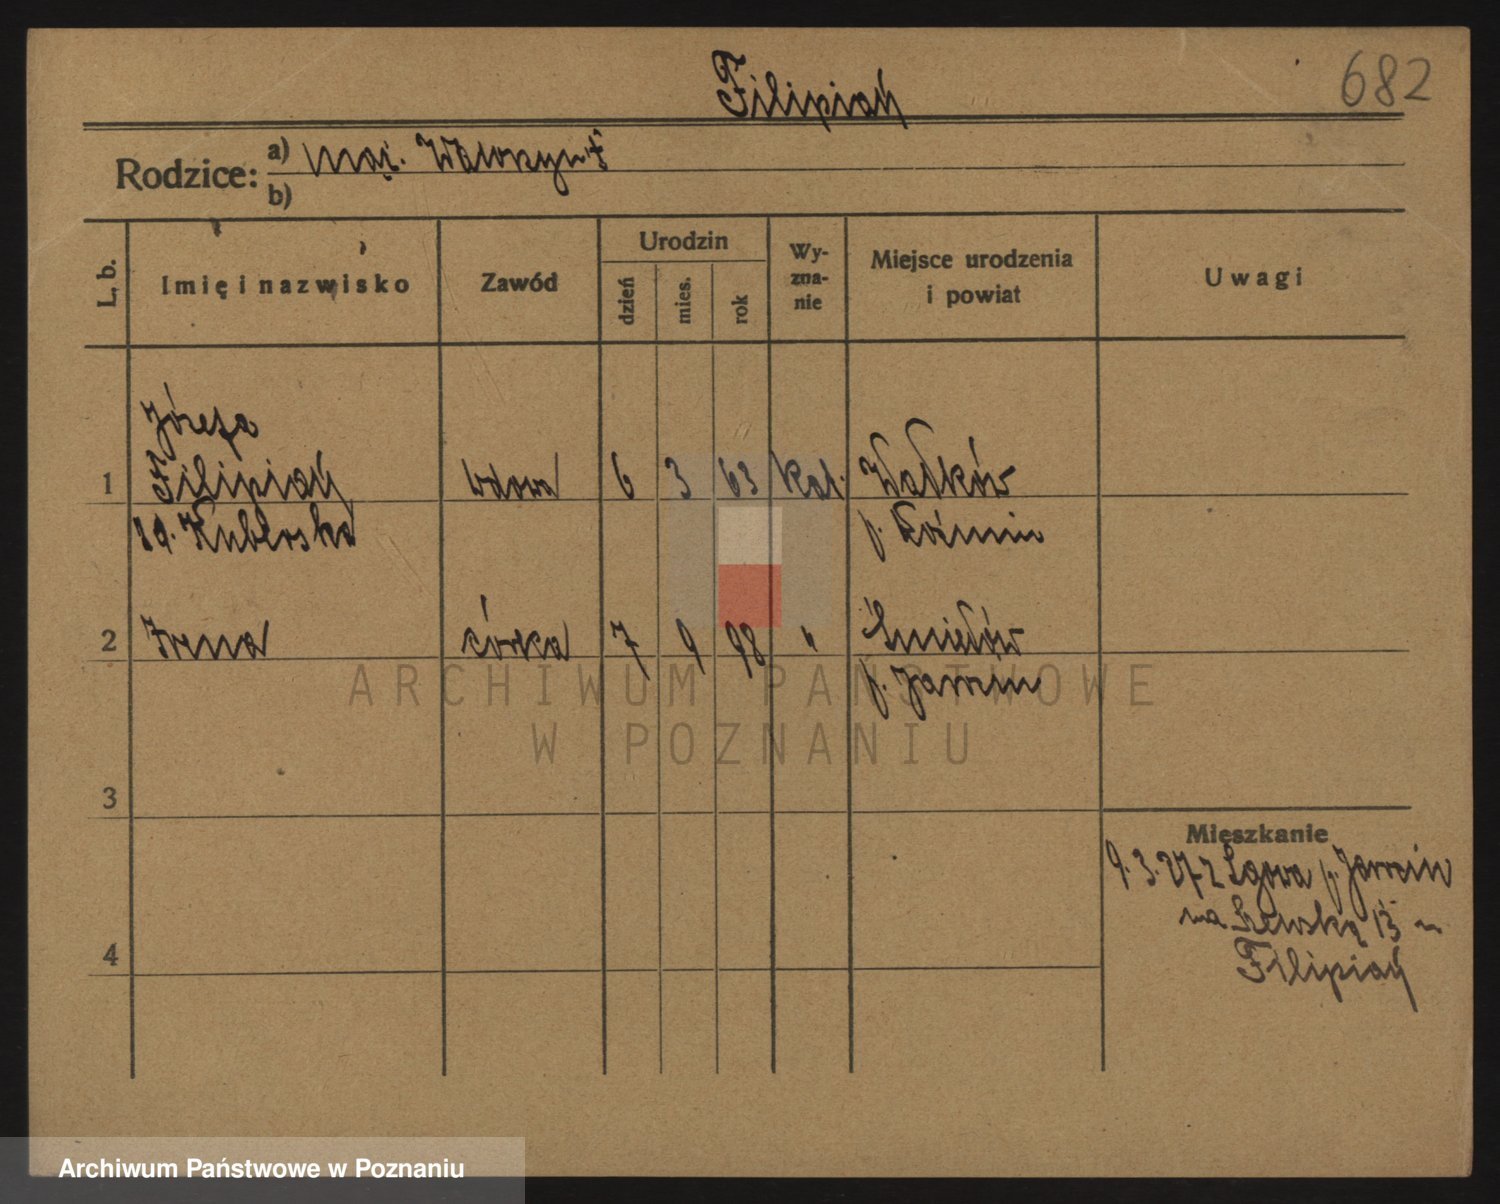 682
Filipiak
Rodzice: a) mąż. Wawrzyn †
b)
L. b.
Imię i nazwisko
Zawód
Urodzin
dzień
mies.
rok
Wy-
zna-
nie
Miejsce urodzenia
i powiat
Uwagi
Józefa
1 Filipiak wdowa 6 3 63 kat. Wałków
p. Koźmin
2 Irena córka 7 9 98 " Śmiełów
p. Jarocin
3
4
Mieszkanie
9.3.27 z Lgowa p. Jarocin
na 13
Filipiak
ARCHIWUM PAŃSTWOWE
W POZNANIU
Archiwum Państwowe w Poznaniu